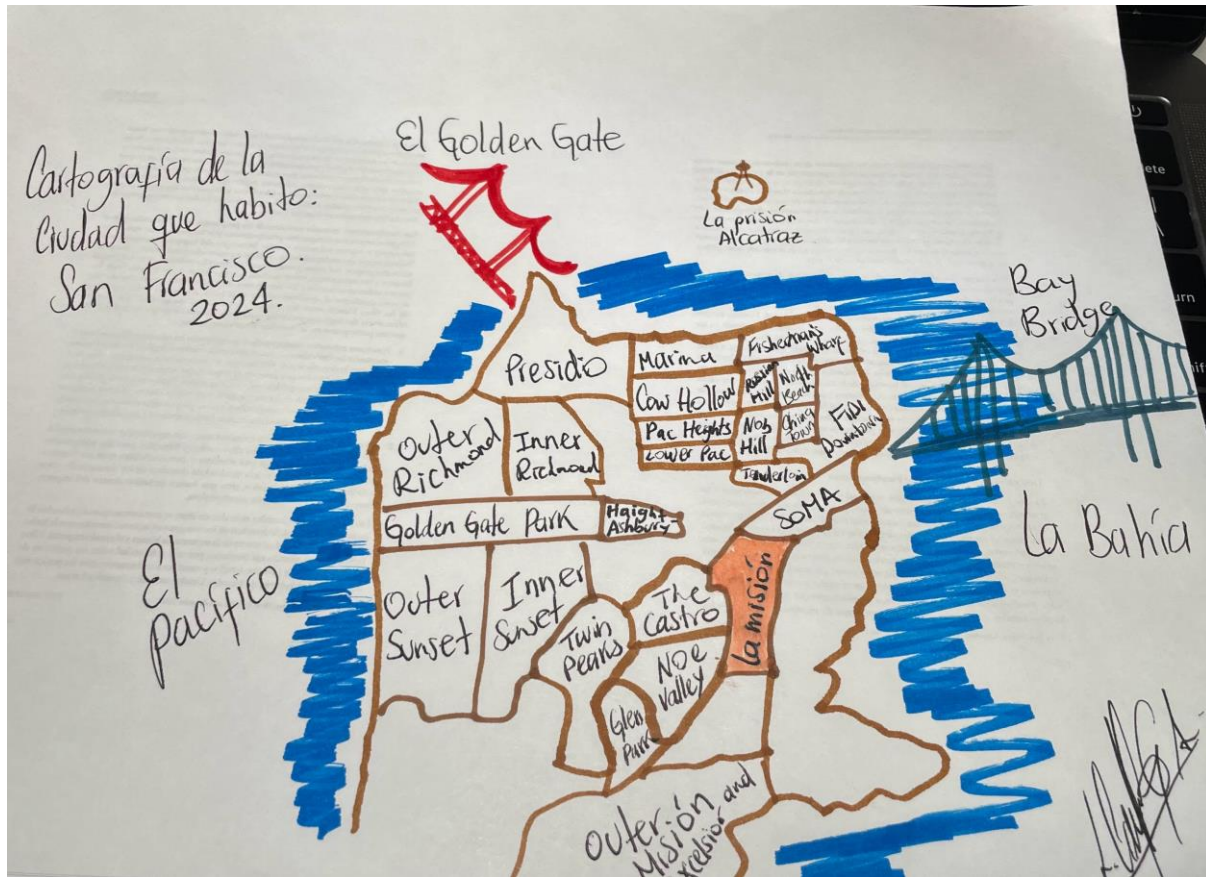 Cartografía de la
Ciudad que habito:
San Francisco.
2024.
El Golden Gate
La prisión
Alcatraz
Bay
Bridge
Presidio
Marina
Fisherman's
Wharf
Cow Hollow
Russian
Hill
North
Beach
Pac Heights
Nob
Hill
China
Town
FiDi
Downtown
Lower Pac
Tenderloin
Outer
Richmond
Inner
Richmond
SoMA
Golden Gate Park
Haight-
Ashbury
La Bahía
El
pacífico
Outer
Sunset
Inner
Sunset
Twin
Peaks
The
Castro
La misión
Noe
Valley
Glen
Park
Outer
Misión and
xcelsior
ete
urn